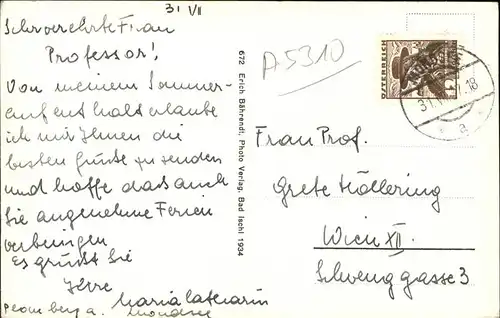 31 VII
Sehrverehrte Frau
Professor!
Von meinem Sommer-
aufenthalt erlaube
ich mir Ihnen die
besten Grüße zu senden
und hoffe dass auch
Sie angenehme Ferien
verbringen
Es grüßt Sie
Ihre
Maria
a. Mondsee
672 Erich Bährendt, Photo Verlag, Bad Ischl 1934
A5310
ÖSTERREICH
Frau Prof.
Grete Höllering
Wien XII.
gasse 3